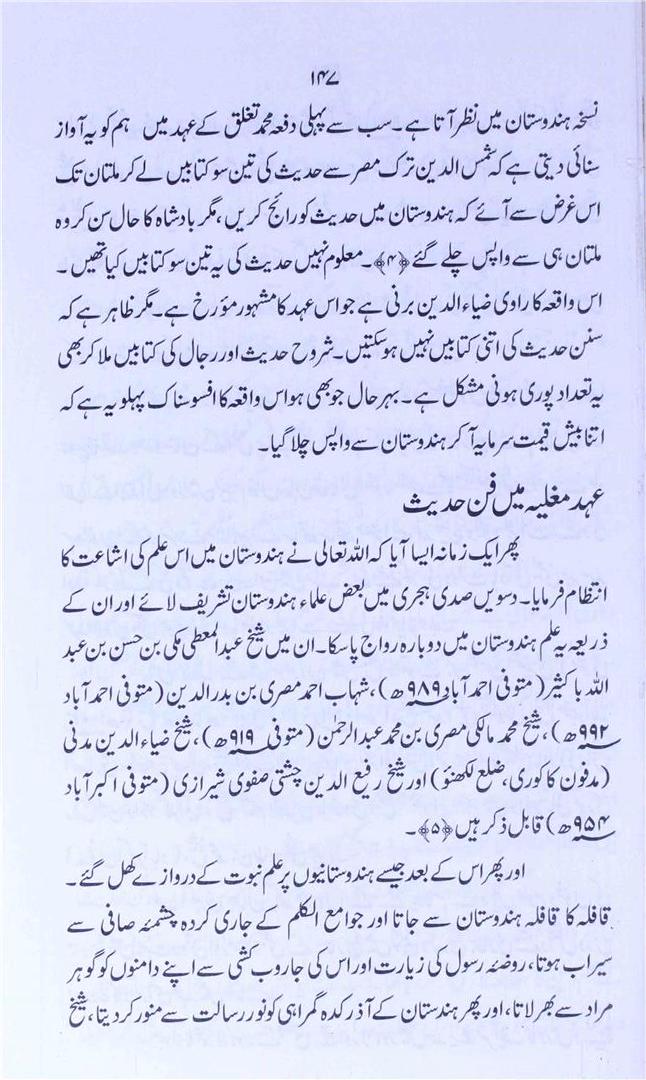 ۱۴۷
نسخہ ہندوستان میں نظر آتا ہے۔ سب سے پہلی دفعہ محمد تغلق کے عہد میں ہم کو یہ آواز
سنائی دیتی ہے کہ شمس الدین ترک مصر سے حدیث کی تین سو کتابیں لے کر ملتان تک
اس غرض سے آئے کہ ہندوستان میں حدیث کو رائج کریں، مگر بادشاہ کا حال سن کر وہ
ملتان ہی سے واپس چلے گئے ﴿۴﴾۔ معلوم نہیں حدیث کی یہ تین سو کتابیں کیا تھیں۔
اس واقعہ کا راوی ضیاء الدین برنی ہے جو اس عہد کا مشہور مؤرخ ہے۔ مگر ظاہر ہے کہ
سنن حدیث کی اتنی کتابیں نہیں ہوسکتیں۔ شروح حدیث اور رجال کی کتابیں ملا کر بھی
یہ تعداد پوری ہونی مشکل ہے۔ بہر حال جو بھی ہو اس واقعہ کا افسوسناک پہلو یہ ہے کہ
اتنا بیش قیمت سرمایہ آ کر ہندوستان سے واپس چلا گیا۔
عہد مغلیہ میں فن حدیث
پھر ایک زمانہ ایسا آیا کہ اللہ تعالی نے ہندوستان میں اس علم کی اشاعت کا
انتظام فرمایا۔ دسویں صدی ہجری میں بعض علماء ہندوستان تشریف لائے اور ان کے
ذریعہ یہ علم ہندوستان میں دوبارہ رواج پاسکا۔ ان میں شیخ عبدالمعطی مکی بن حسن بن عبد
اللہ باکثیر (متوفی احمد آباد ۹۸۹ھ)، شہاب احمد مصری بن بدرالدین (متوفی احمد آباد
۹۹۲ھ)، شیخ محمد مالکی مصری بن محمد عبدالرحمٰن (متوفی ۹۱۹ھ)، شیخ ضیاء الدین مدنی
(مدفون کاکوری، ضلع لکھنؤ) اور شیخ رفیع الدین چشتی صفوی شیرازی (متوفی اکبرآباد
۹۵۴ھ) قابل ذکر ہیں ﴿۵﴾۔
اور پھر اس کے بعد جیسے ہندوستانیوں پر علم نبوت کے دروازے کھل گئے۔
قافلہ کا قافلہ ہندوستان سے جاتا اور جوامع الکلم کے جاری کردہ چشمۂ صافی سے
سیراب ہوتا، روضۂ رسول کی زیارت اور اس کی جاروب کشی سے اپنے دامنوں کو گوہر
مراد سے بھر لاتا، اور پھر ہندستان کے آذر کدہ گمراہی کو نور رسالت سے منور کردیتا، شیخ